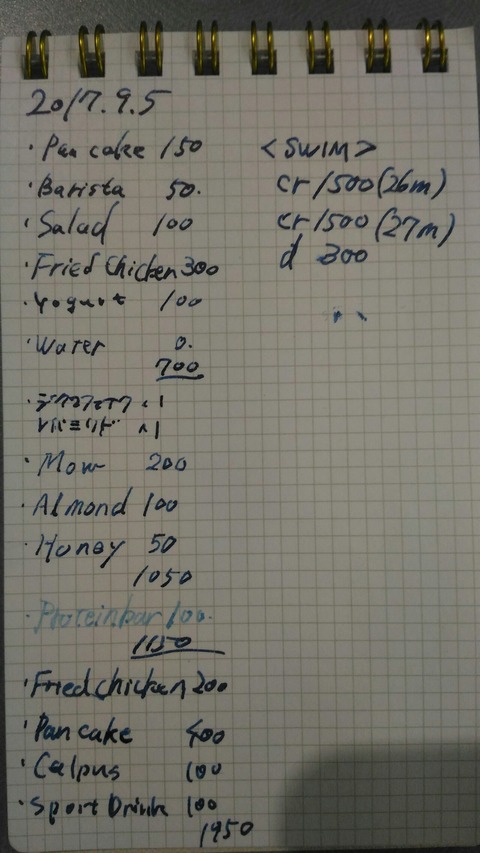 2017.9.5
・Pan cake 150
・Barista 50.
・Salad 100
・Fried Chicken 300
・Yogurt 100
・Water 0.
700
・Mow 200
・Almond 100
・Honey 50
1050
・Protein bar 100.
1150
・Fried chicken 200
・Pan cake 400
・Calpus 100
・Sport Drink 100
1950
<SWIM>
cr 1500 (26m)
cr 1500 (27m)
d 300